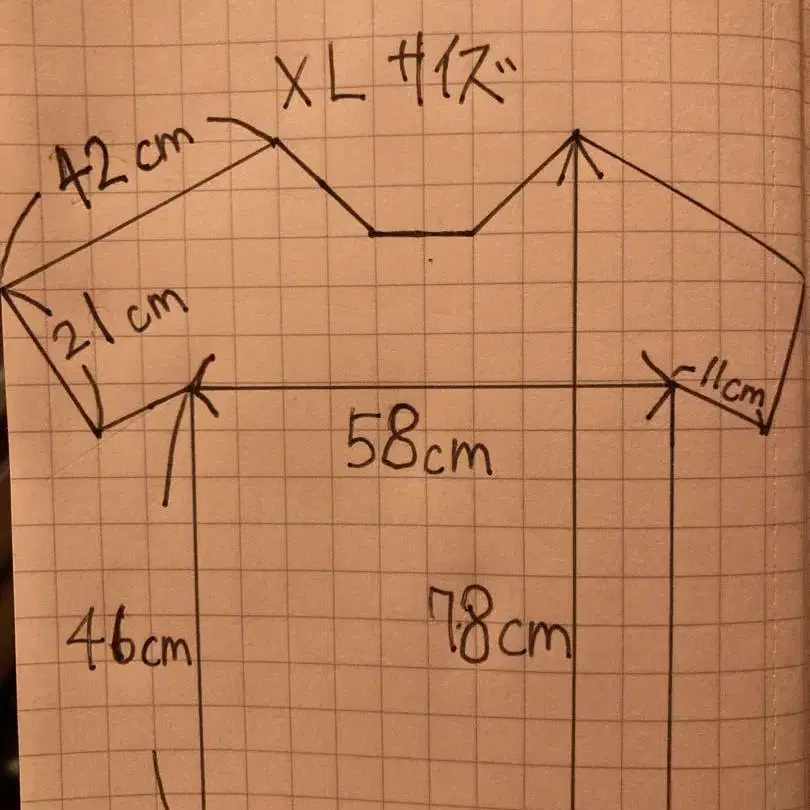 XLサイズ
42cm
21cm
11cm
58cm
46cm
78cm